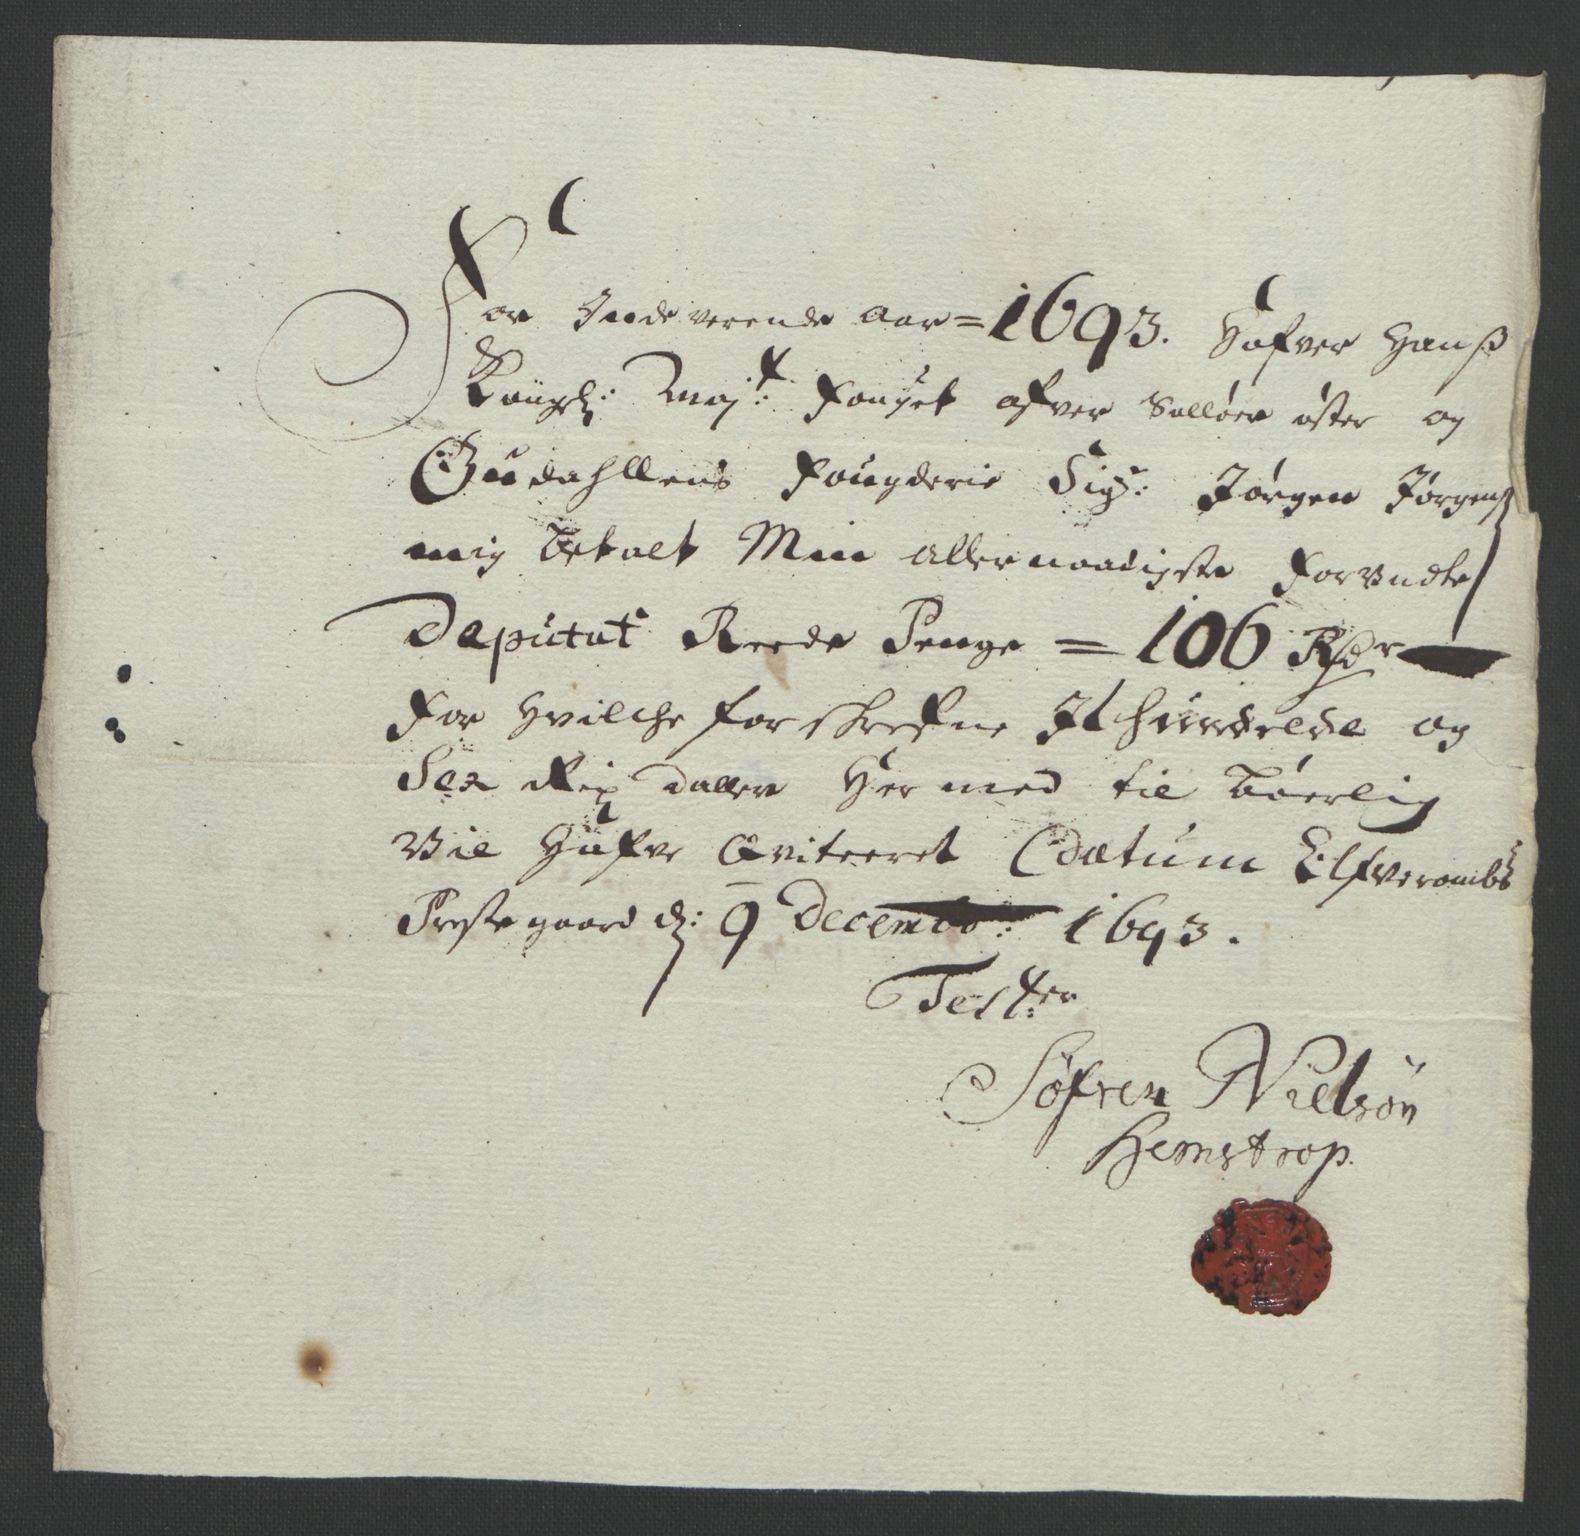 For Inde verende Aar = 1693. Hafver Hanß
Kongl: Maj:t Fouget ofver Solløer øster og
Gudahllens Fougderie Sigr: Jørgen Jørgenß
mig betalt Min allernaadigste Forundte
Deputat Reede Penge = 106 Rdr
for hvilche forskrefne It hundrede og
Sex Rix daller Her med til børlig
Vil hafve qviteeret Datum Elfverombs
Preste gaard d: 9 Decembr: 1693.
Test:er
Søfren Nielsøn
Hemstrop.